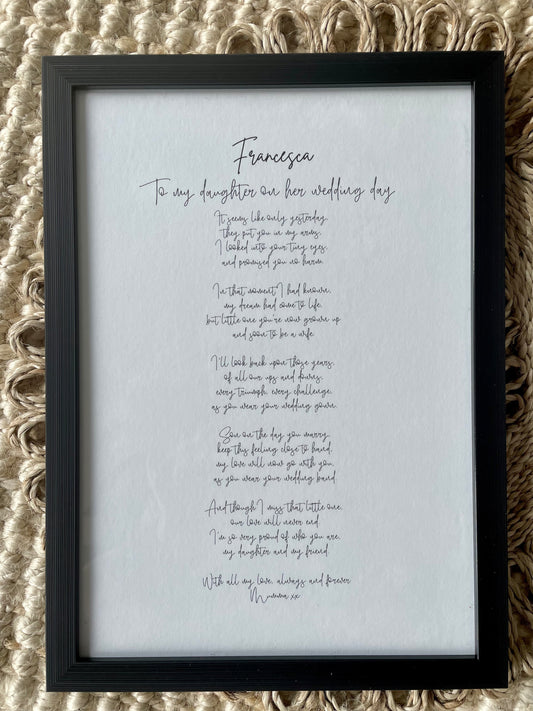 Francesca
To my daughter on her wedding day
It seems like only yesterday,
they put you in my arms,
I looked into your tiny eyes,
and promised you no harm.
In that moment I had known,
my dream had come to life,
but little one you're now grown up
and soon to be a wife.
I'll look back upon those years,
of all our ups and downs,
every triumph, every challenge,
as you wear your wedding gown.
Son on the day you marry
keep this feeling close to hand,
my love will now go with you,
as you wear your wedding band.
And though I miss that little one,
our love will never end.
I'm so very proud of who you are,
my daughter and my friend.
With all my love, always and forever
Mumma xx